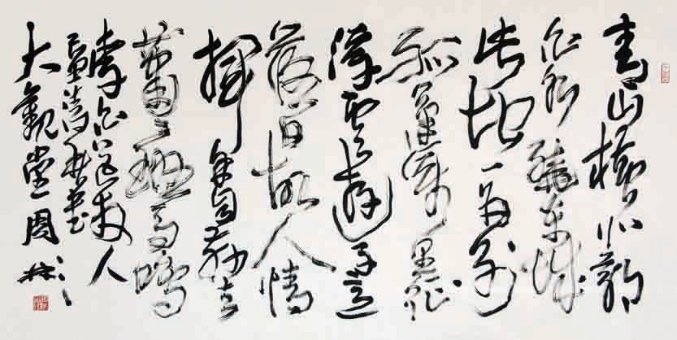 青山橫北郭
白水繞東城
此地一為別
孤蓬萬里征
浮雲遊子意
落日故人情
揮手自茲去
蕭蕭班馬鳴
李白送友人
書
大觀堂周